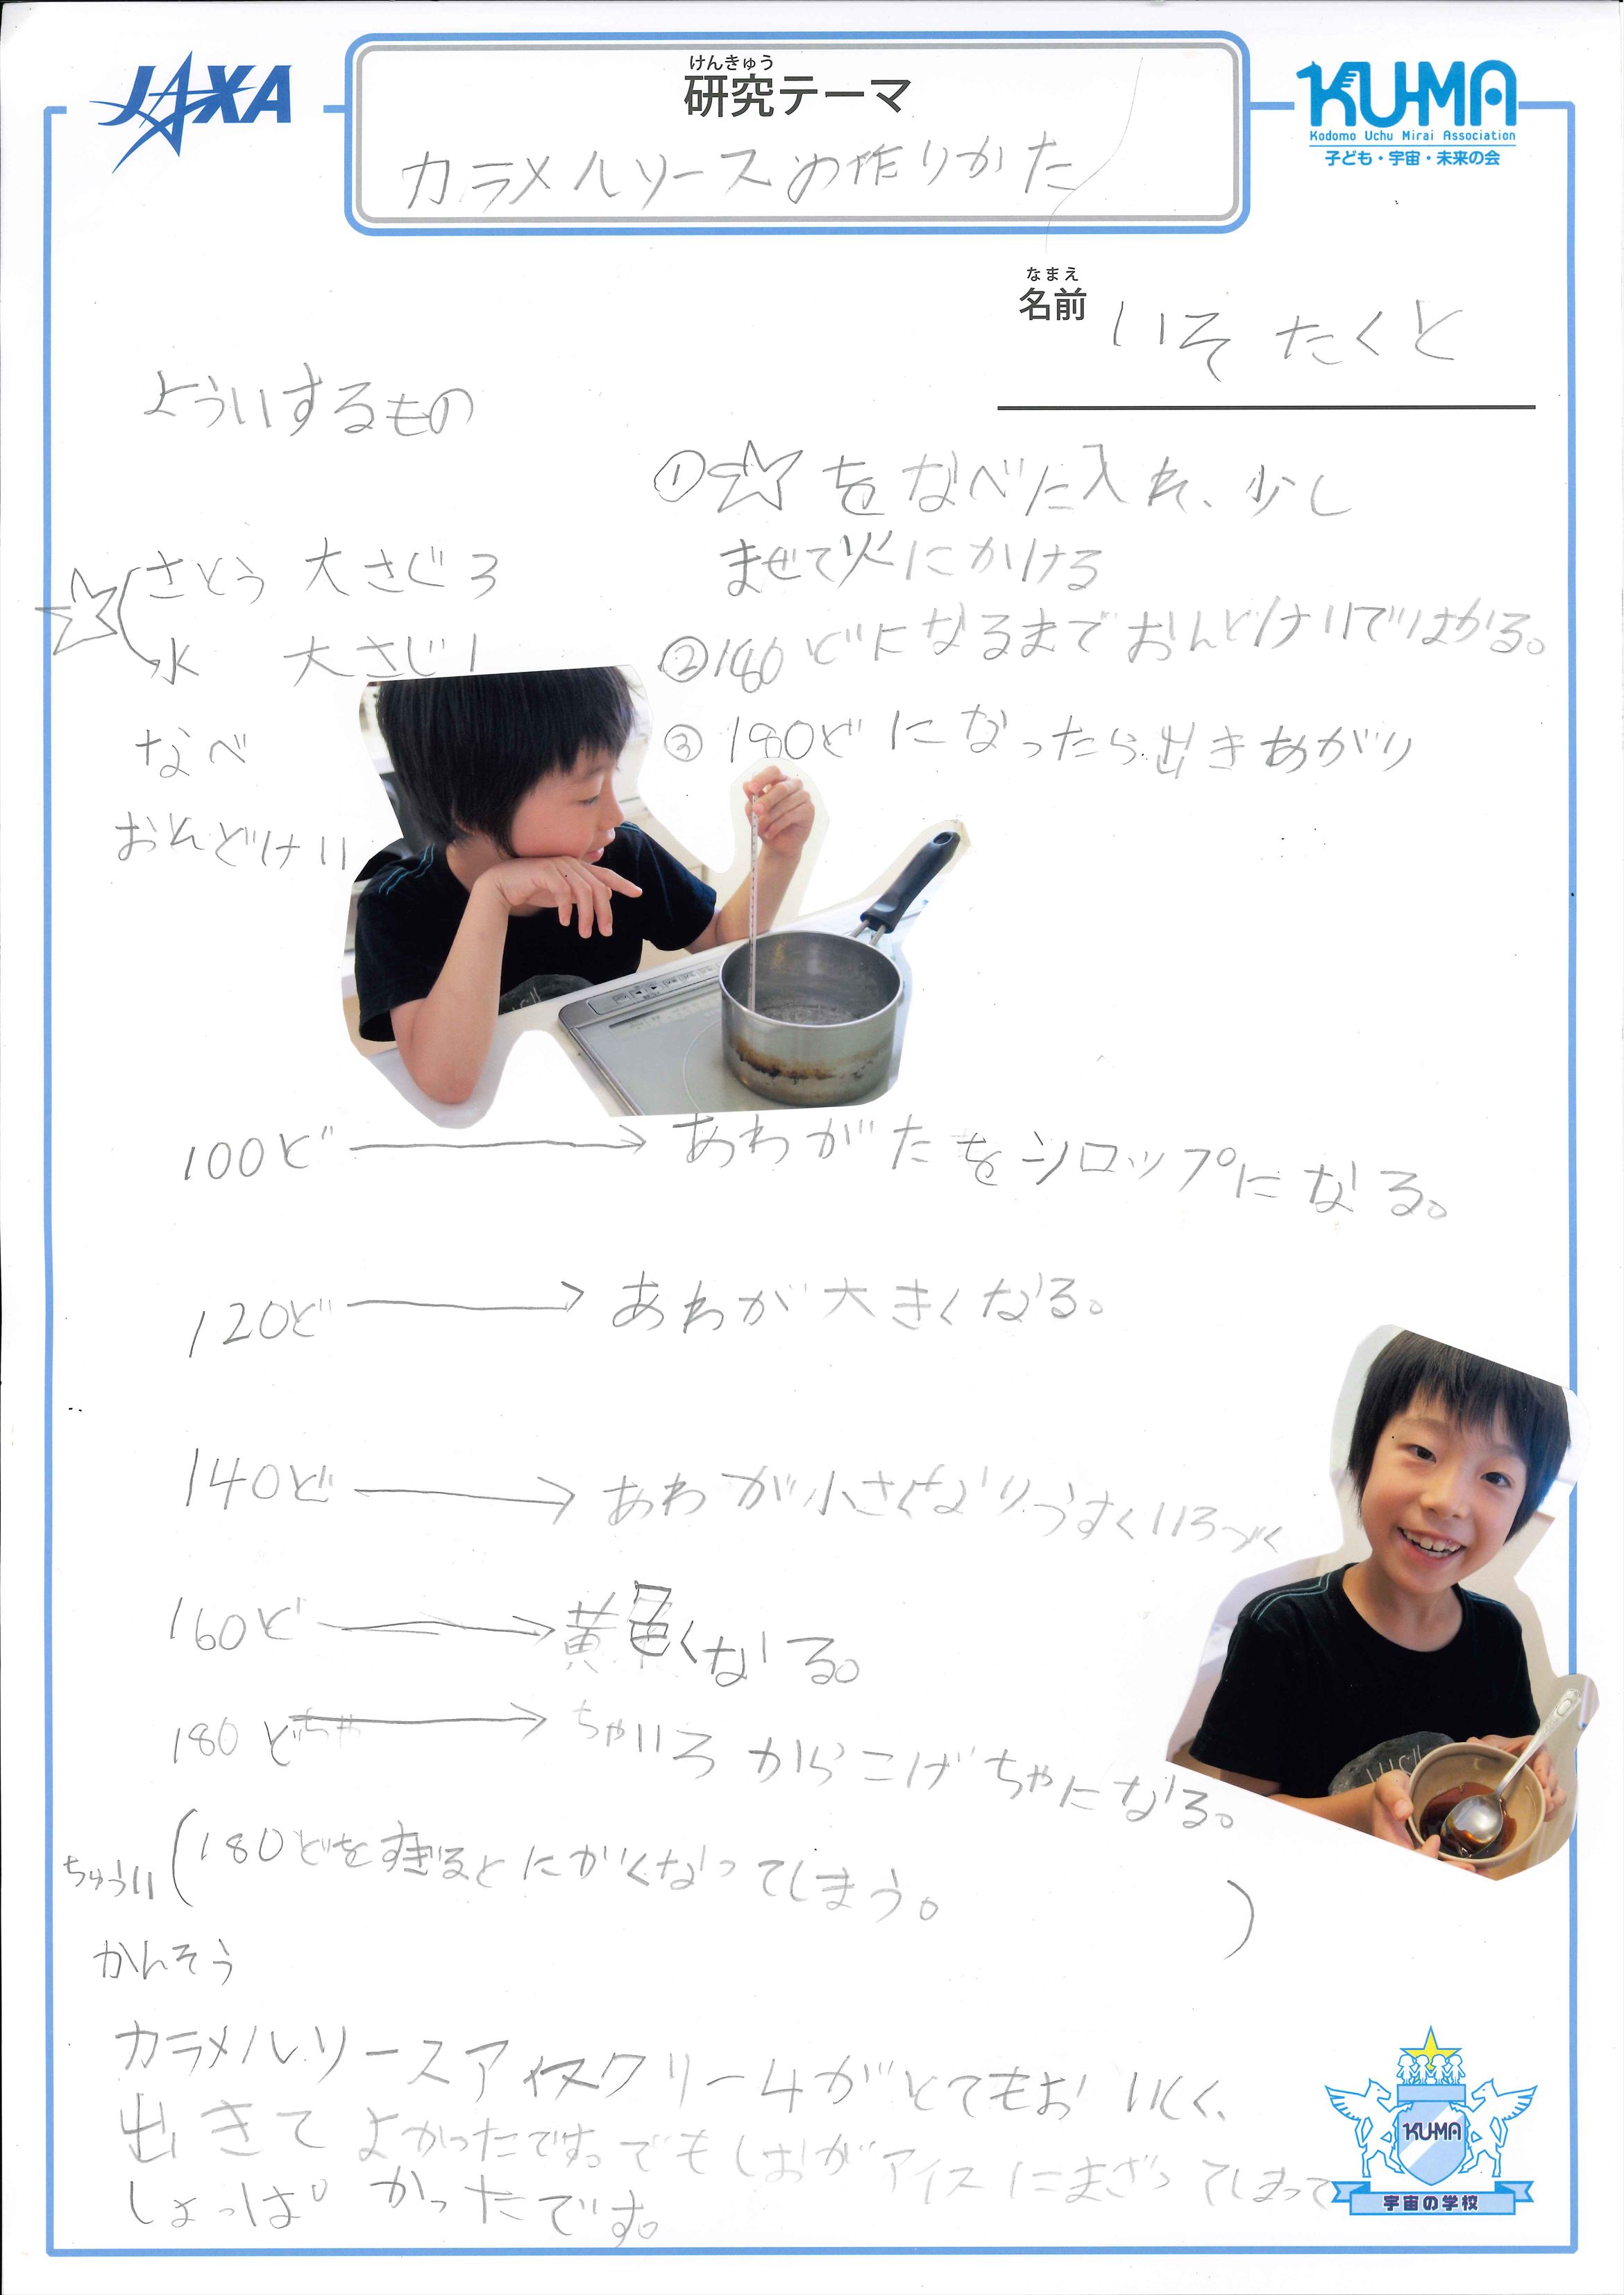 JAXA
けんきゅう
研究テーマ
カラメルソースの作りかた
KU-MA
Kodomo Uchu Mirai Association
子ども・宇宙・未来の会
なまえ
名前 いそ たくと
よういするもの
☆ さとう 大さじ3
水 大さじ1
なべ
おんどけい
①☆をなべに入れ、少し
まぜて火にかける
②180どになるまでおんどけいではかる。
③180どになったら出きあがり
100ど→あわがたをシロップになる。
120ど→あわが大きくなる。
140ど→あわが小さくなりうすくいろづく
160ど→黄色くなる。
180ど→ちゃいろからこげちゃになる。
ちゅうい(180どをすぎるとにがくなってしまう。)
かんそう
カラメルソースアイスクリームがとてもおいしく、
出きてよかったです。でもしおがアイスにまざってしまって
しょっぱかったです。
KU-MA
宇宙の学校